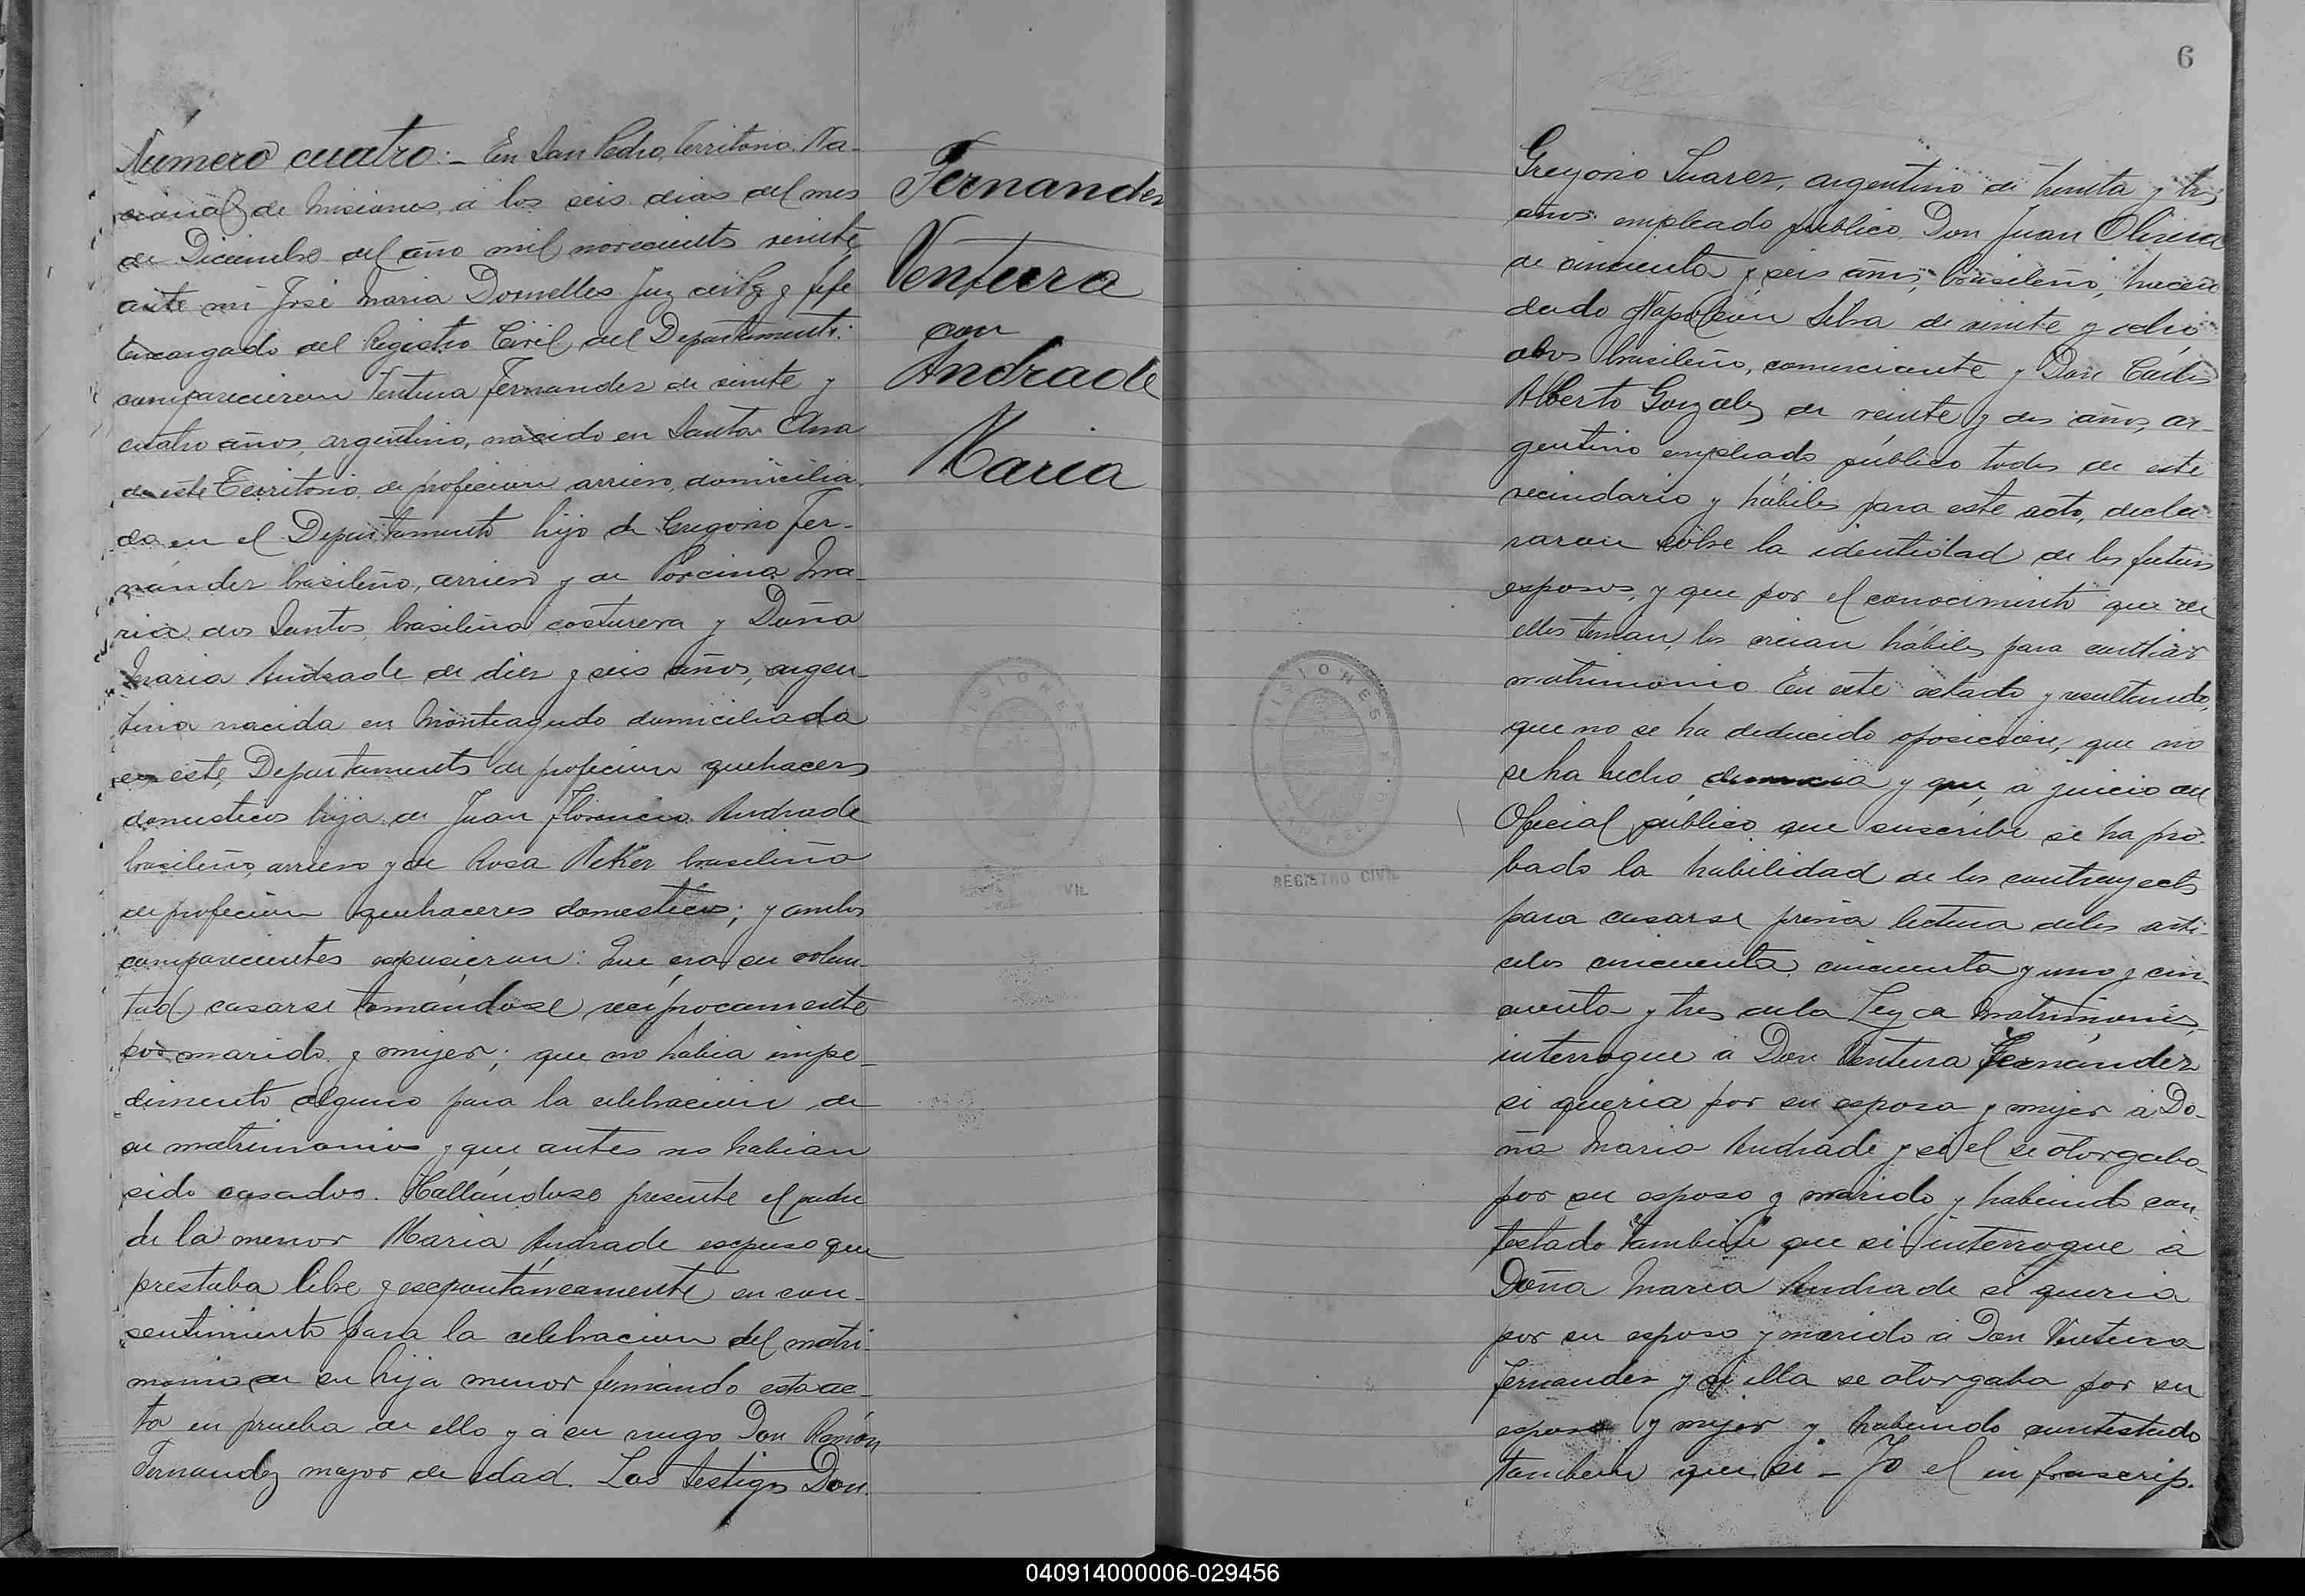 Número cuatro:- En San Pedro, Territorio Na-
cional de Misiones, á los seis dias del mes
de Diciembre del año mil novecientos veinte
ante mí José Maria Dornelles Juez de Paz y Jefe
Encargado del Registro Civil del Departamento:
comparecieron Ventura Fernandez de veinte y
cuatro años, argentino, nacido en Santa Ana
de este Territorio, de profecion arriero, domicilia-
do en el Departamento hijo de Gregorio Fer-
nández brasileño, arriero y de Porcina Ma-
ria dos Santos, brasileña costurera y Doña
Maria Andrade de diez y seis años, argen-
tina nacida en Monteagudo domiciliada
en este Departamento de profecion quehaceres
domesticos hija de Juan Florencio Andrade
brasileño, arriero y de Rosa Neker brasileña
de profecion quehaceres domesticos; y ambos
comparecientes expusieron: Que era su volun-
tad casarse tomándose recíprocamente
por marido y mujer; que no habia impe-
dimento alguno para la celebracion de
su matrimonio y que antes no habian
sido casados. Hallándose presente el padre
de la menor Maria Andrade expuso que
prestaba libre y espontáneamente su con-
sentimiento para la celebracion del matri-
monio de su hija menor firmando esta ac-
ta en prueba de ello y á su ruego Don Ramón
Fernandez mayor de edad. Los testigos Don
Fernandez
Ventura
con
Andrade
Maria
MISIONES
VIL
6
Gregorio Suarez, argentino de treinta y tres
años empleado publico, Don Juan Olivera
de cincuenta y seis años, brasileño, hacen-
dado Napoleón Silva de veinte y ocho
años brasileño, comerciante y Don Carlos
Alberto Gonzalez de veinte y dos años, ar-
gentino empleado público todos de este
vecindario y hábiles para este acto, decla-
raron sobre la identidad de los futuros
esposos, y que por el conocimiento que de
ellos tenian, los creian hábiles para contraer
matrimonio. En este estado y resultando,
que no se ha deducido oposicion, que no
se ha hecho denuncia y que, a juicio del
Oficial público que suscribe se ha pro-
bado la habilidad de los contrayentes
para casarse prévia lectura de los arti-
culos cincuenta, cincuenta y uno y cin-
cuenta y tres de la Ley de Matrimonio,
interrogue á Don Ventura Fernández
si queria por su esposa y mujer á Do-
ña Maria Andrade y si el se otorgaba
por su esposo y marido y habiendo con-
testado tambien que si interrogue á
Doña Maria Andrade si queria
por su esposo y marido á Don Ventura
Fernandez y si ella se otorgaba por su
esposa y mujer y habiendo contestado
tambien que si - Yo el infrascrip-
MISIONES
REGISTRO CIVIL
040914000006-029456